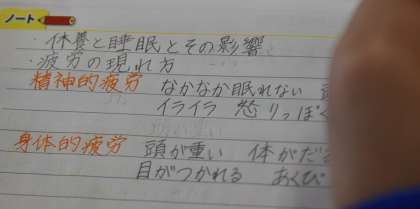 ノート
・休養と睡眠とその影響
・疲労の現れ方
精神的疲労 なかなか眠れない
イライラ 怒りっぽく
身体的疲労 頭が重い 体がだる
目がつかれる あくび